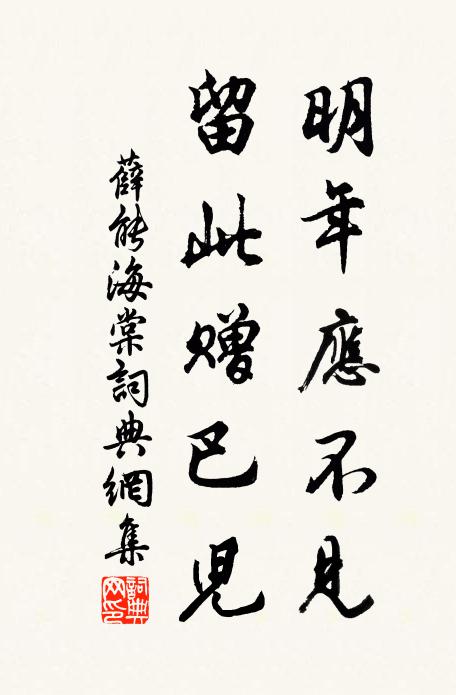 明年應不見
留此贈巴兒
薛能海棠詞典網集
詞典網印